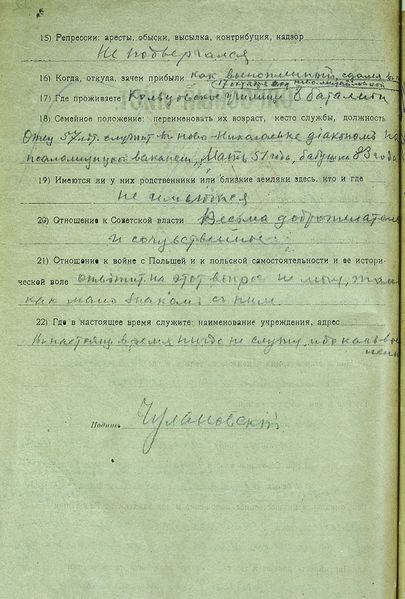 15) Репрессии: аресты, обыски, высылка, контрибуция, надзор
Не подвергался
16) Когда, откуда, зачем прибыли как военнопленный, сдался
17) Где проживаете училище 8 баталион
18) Семейное положение: переименовать их возраст, место службы, должность
Отец 57 лет. служит в г. Ново-Николаевске диаконом на
псаломщицкой вакансии, Мать 51 года, бабушка 83 года
19) Имеются ли у них родственники или близкие земляки здесь, кто и где
не имеются
20) Отношение к Советской власти Весьма доброжелател
и сочувственное.
21) Отношение к войне с Польшей и к польской самостоятельности и ее истори-
ческой воле ответить на этот вопрос не могу, так
как мало знаком с ним.
22) Где в настоящее время служите: наименование учреждения, адрес
В настоящ. время нигде не служу, ибо как во
Подпись Чулановский